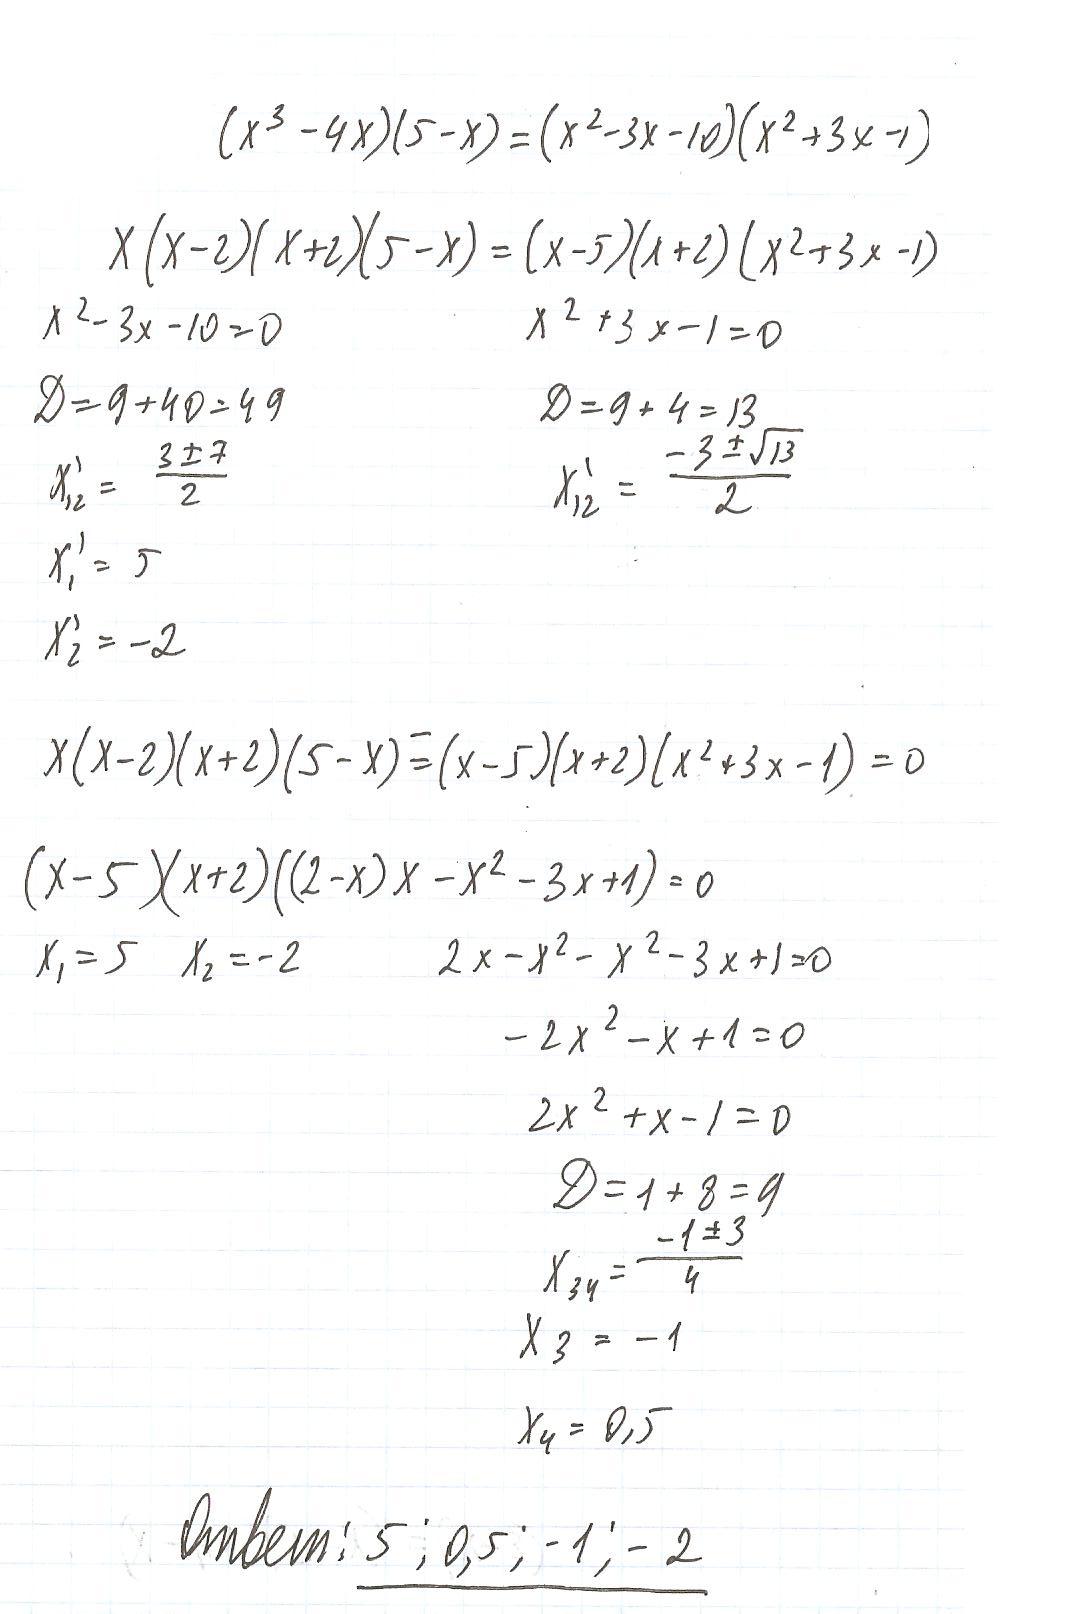 (x³ - 4x)(5 - x) = (x² - 3x - 10)(x² + 3x - 1)
x(x - 2)(x + 2)(5 - x) = (x - 5)(x + 2)(x² + 3x - 1)
x² - 3x - 10 = 0
D = 9 + 40 = 49
x'₁,₂ = (3 ± 7)/2
x'₁ = 5
x'₂ = -2
x² + 3x - 1 = 0
D = 9 + 4 = 13
x'₁,₂ = (-3 ± √13)/2
x(x - 2)(x + 2)(5 - x) - (x - 5)(x + 2)(x² + 3x - 1) = 0
(x - 5)(x + 2)((2 - x)x - x² - 3x + 1) = 0
x₁ = 5 x₂ = -2
2x - x² - x² - 3x + 1 = 0
-2x² - x + 1 = 0
2x² + x - 1 = 0
D = 1 + 8 = 9
x₃₄ = (-1 ± 3)/4
x₃ = -1
x₄ = 0,5
Ответ: 5; 0,5; -1; -2